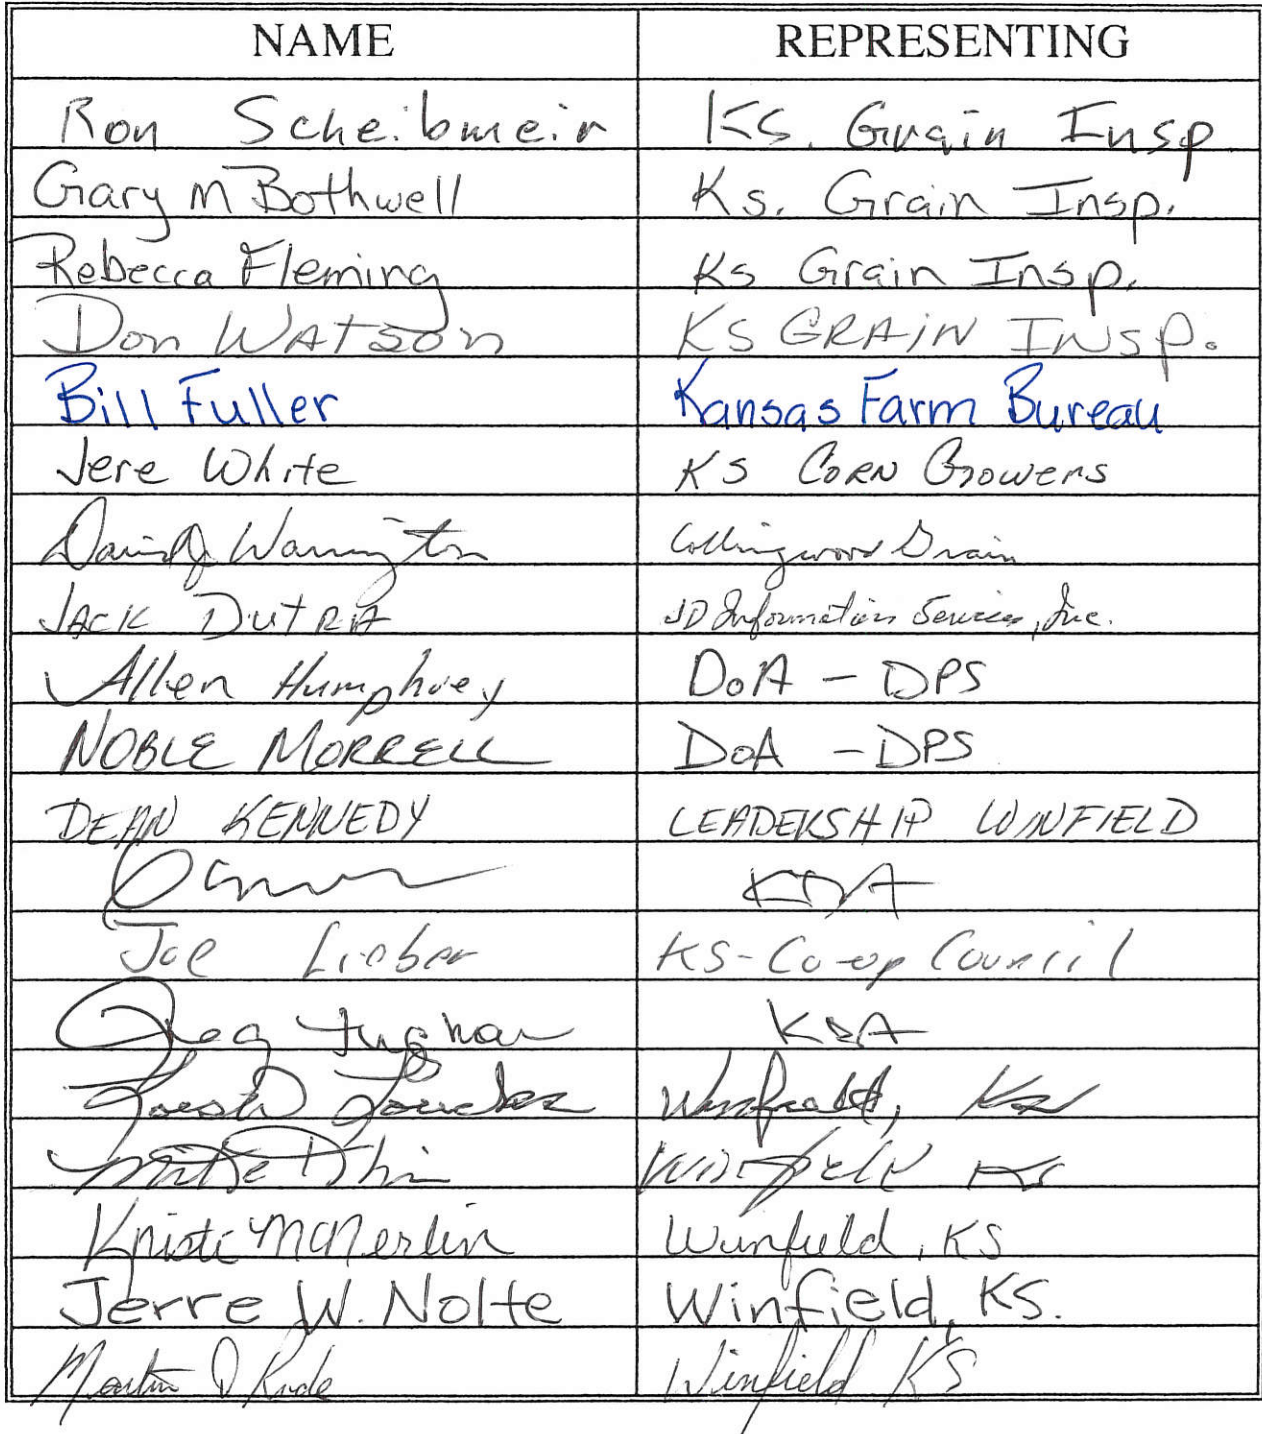 NAME REPRESENTING
Ron Scheibmeir KS. Grain Insp
Gary M Bothwell Ks. Grain Insp.
Rebecca Fleming Ks Grain Insp.
Don WATSON KS GRAIN INSP.
Bill Fuller Kansas Farm Bureau
Jere White KS CORN Growers
David J. Warrington Collingwood Grain
JACK DUTRA JD Information Services, Inc.
Allen Humphrey DoA - DPS
NOBLE MORRELL DoA - DPS
DEAN KENNEDY LEADERSHIP WINFIELD
KDA
Joe Lieber KS-Co-op Council
Greg KDA
Winfield, Ks
Mike Winfield KS
Kristi Winfield, KS
Jerre W. Nolte Winfield, KS.
Martin Winfield KS